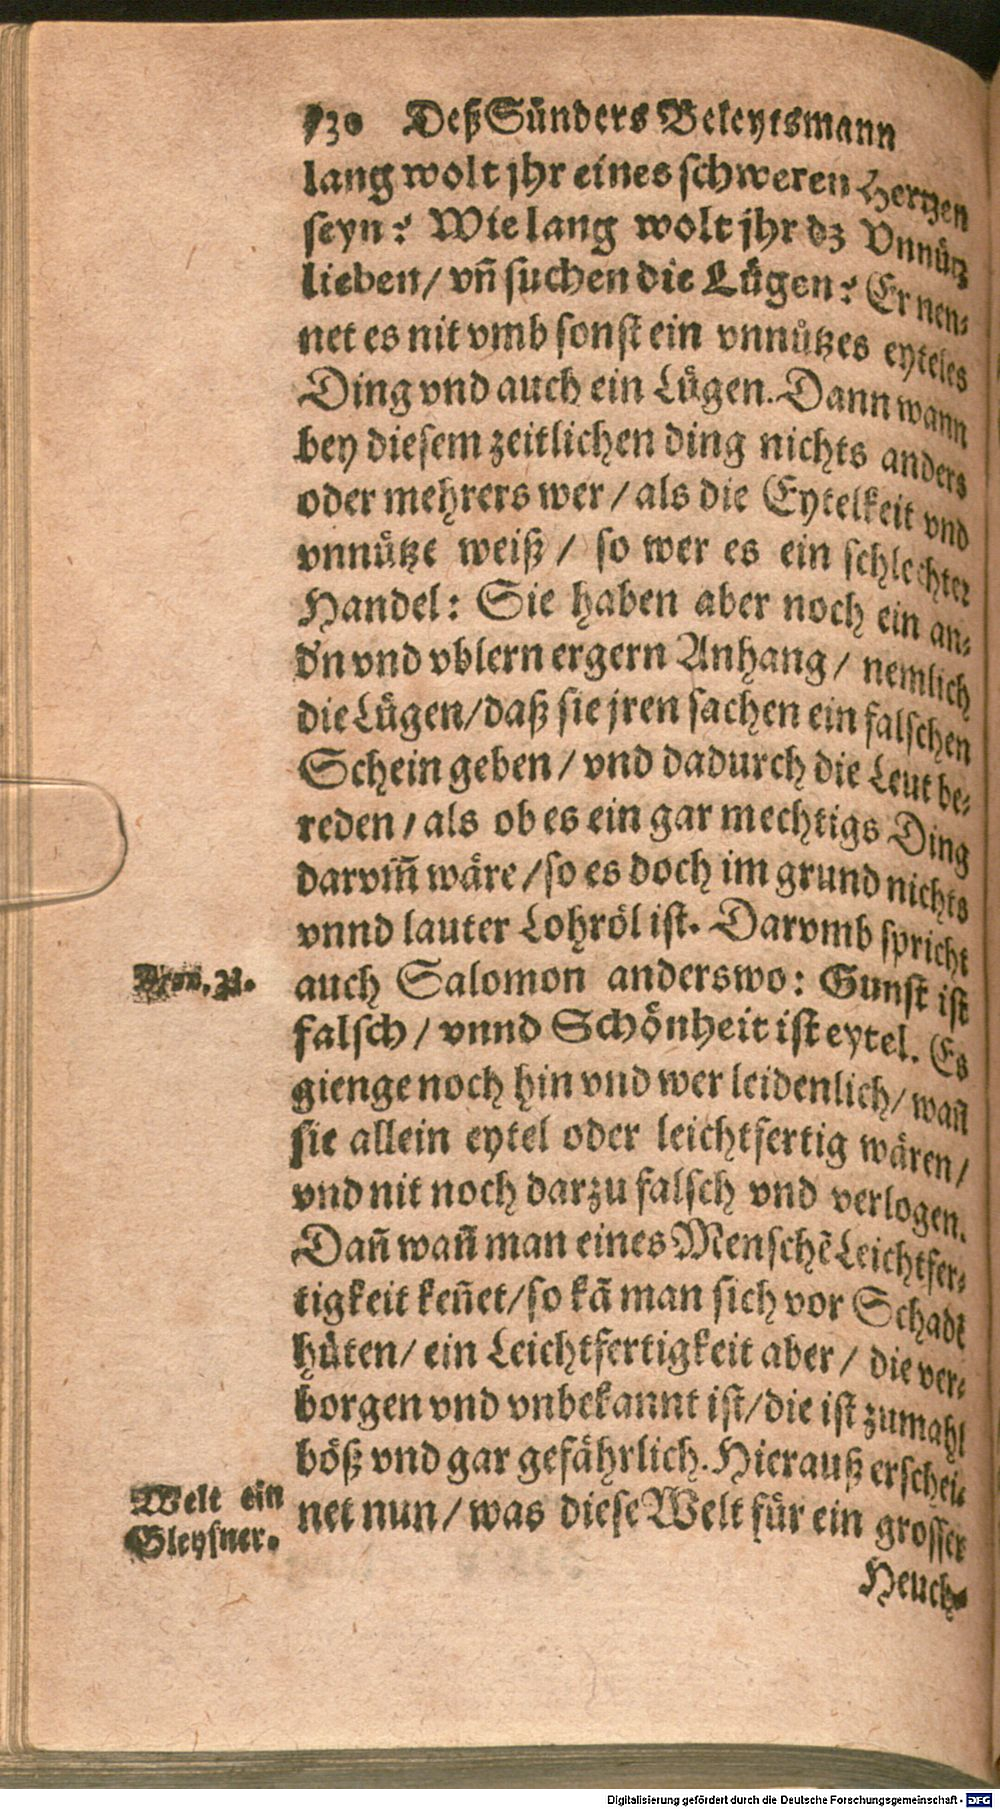 Deß Sünders Beleytsmann
lang wolt jhr eines schweren Hertzen
seyn? Wie lang wolt jhr dz Vnnütz
lieben/ vñ suchen die Lügen? Er nen⸗
net es nit vmb sonst ein vnnützes eyteles
Ding vnd auch ein Lügen. Dann wann
bey diesem zeitlichen ding nichts anders
oder mehrers wer/ als die Eytelkeit vnd
vnnütze weiß/ so wer es ein schlechter
Handel: Sie haben aber noch ein an⸗
d'n vnd vblern ergern Anhang/ nemlich
die Lügen/ daß sie jren sachen ein falschen
Schein geben/ vnd dadurch die Leut be⸗
reden/ als ob es ein gar mechtigs Ding
darvm̃ wäre/ so es doch im grund nichts
vnnd lauter Lohröl ist. Darvmb spricht
Prov. 31.
auch Salomon anderswo: Gunst ist
falsch/ vnnd Schönheit ist eytel. Es
gienge noch hin vnd wer leidenlich/ wañ
sie allein eytel oder leichtfertig wären/
vnd nit noch darzu falsch vnd verlogen.
Dañ wañ man eines Menschẽ Leichtfer⸗
tigkeit keñet/ so kã man sich vor Schadẽ
hüten/ ein Leichtfertigkeit aber/ die ver⸗
borgen vnd vnbekannt ist/ die ist zumahl
böß vnd gar gefährlich. Hierauß erschei⸗
Welt ein
Gleysner.
net nun/ was diese Welt für ein grosser
Heuch⸗
Digitalisierung gefördert durch die Deutsche Forschungsgemeinschaft - DFG